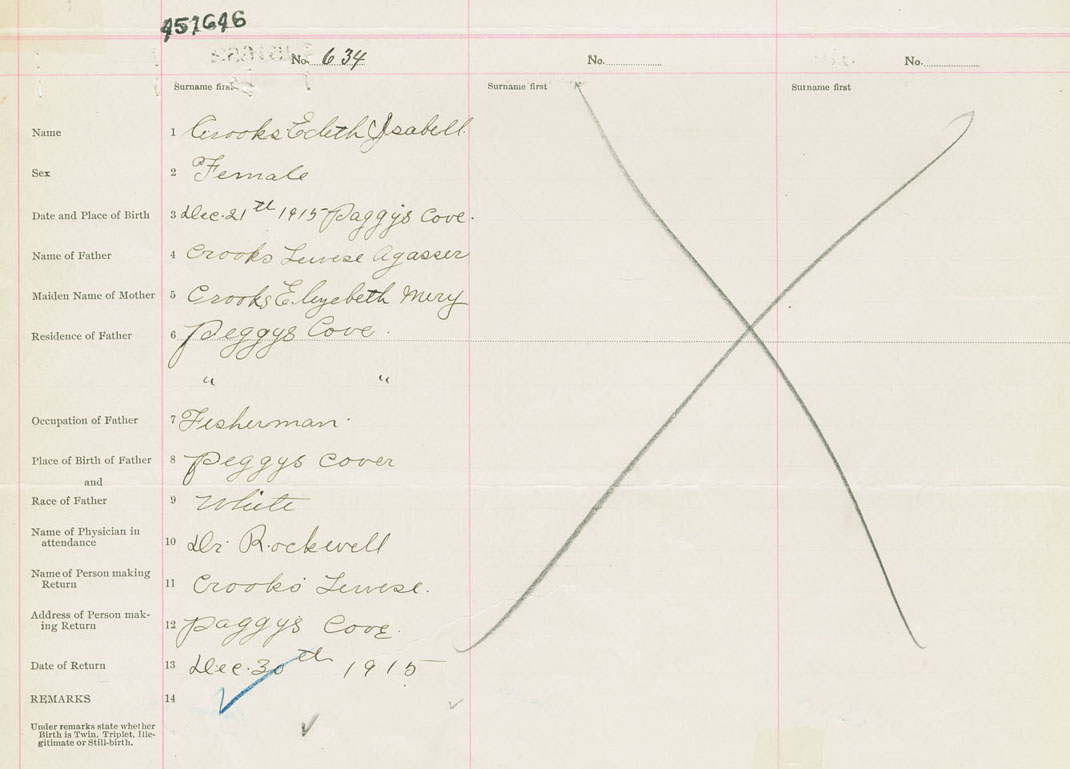 457646
No. 634 No. No.
Surname first Surname first Surname first
Name 1 Crooks Edeth Isabell
Sex 2 Female
Date and Place of Birth 3 Dec. 21th 1915 Paggys Cove.
Name of Father 4 Crooks Lewese Agasser
Maiden Name of Mother 5 Crooks Elizebeth Mery
Residence of Father 6 Peggys Cove.
" "
Occupation of Father 7 Fisherman.
Place of Birth of Father 8 Peggys Cover
and
Race of Father 9 White
Name of Physician in
attendance 10 Dr. Rockwell
Name of Person making
Return 11 Crooks Lewese.
Address of Person mak-
ing Return 12 Paggys Cove.
Date of Return 13 Dec. 30th 1915
REMARKS 14
Under remarks state whether
Birth is Twin, Triplet, Ille-
gitimate or Still-birth.